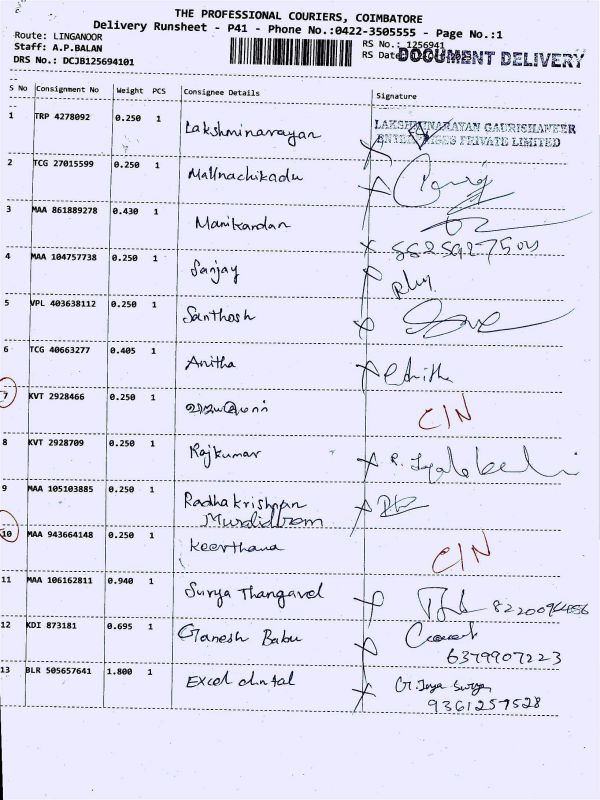 THE PROFESSIONAL COURIERS, COIMBATORE
Delivery Runsheet - P41 - Phone No.:0422-3505555 - Page No.:1
Route: LINGANOOR
Staff: A.P.BALAN
DRS No.: DCJB125694101
RS No.: 1256941
RS Date
DOCUMENT DELIVERY
S No Consignment No Weight PCS Consignee Details Signature
1 TRP 4278092 0.250 1 Lakshminarayan LAKSHMINARAYAN GAURISHANKER
ENTERPRISES PRIVATE LIMITED
2 TCG 27015599 0.250 1
3 MAA 861889278 0.430 1 Manikandan
4 MAA 104757738 0.250 1 Sanjay
5 VPL 403638112 0.250 1 Santhosh
6 TCG 40663277 0.405 1 Anitha
7 KVT 2928466 0.250 1 C/N
8 KVT 2928709 0.250 1 Rajkumar
9 MAA 105103885 0.250 1 Radhakrishnan
10 MAA 943664148 0.250 1 Keerthana C/N
11 MAA 106162811 0.940 1 Surya Thangavel
12 KDI 873181 0.695 1 Ganesh Babu
6379907223
13 BLR 505657641 1.800 1 Excel dintal
9361257528